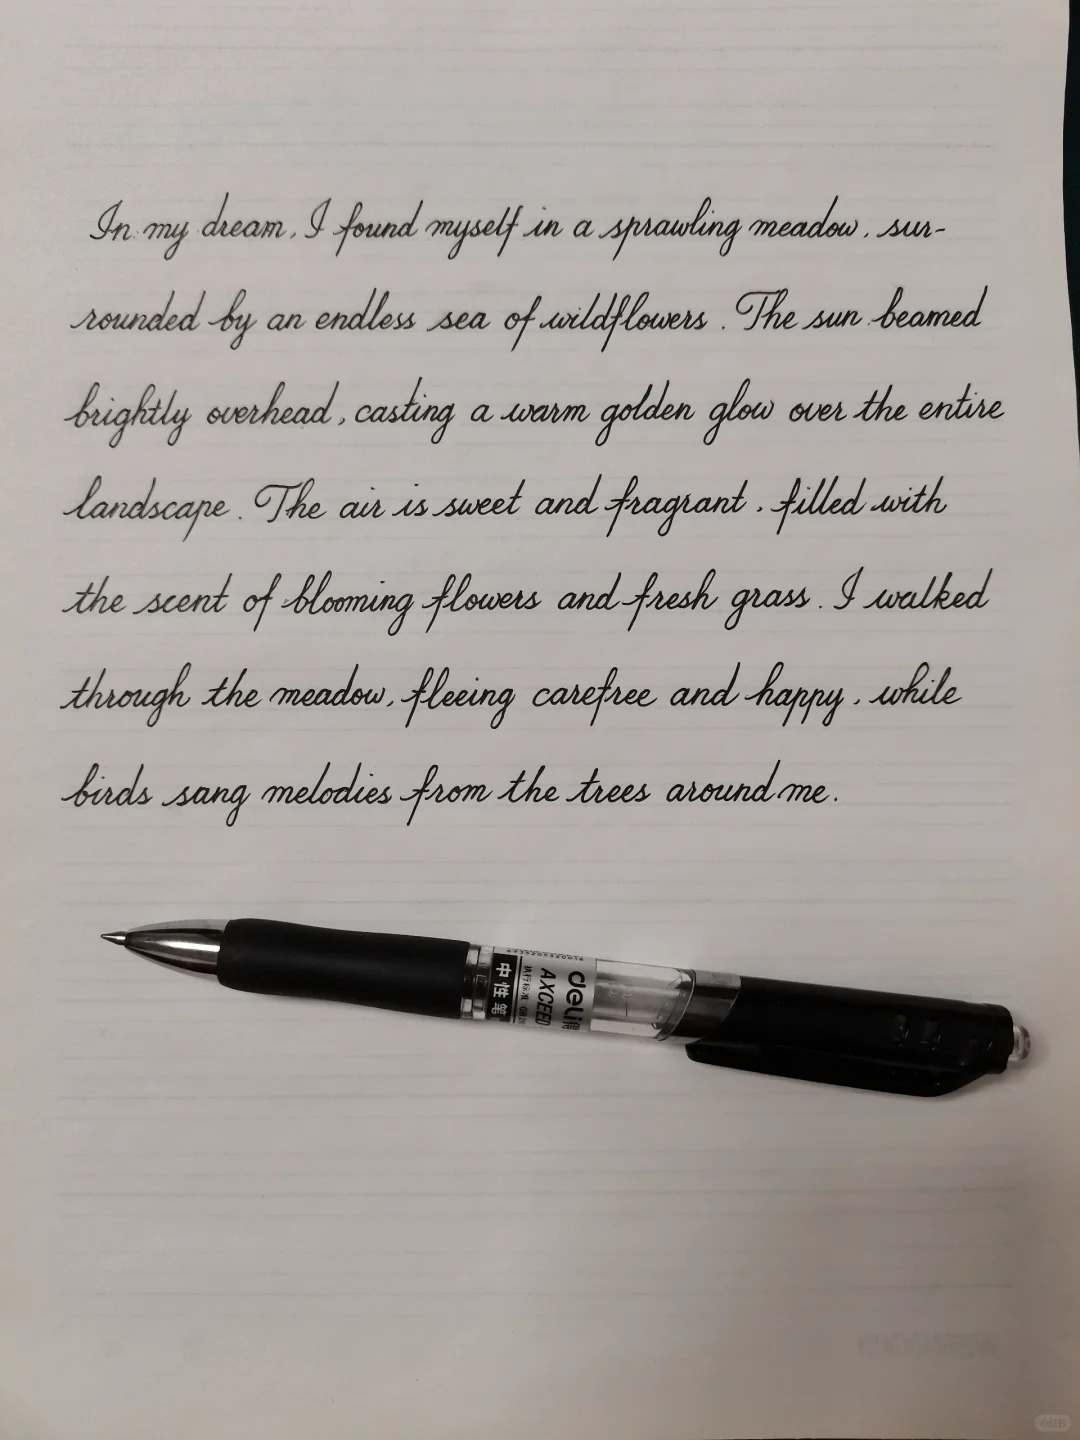 In my dream, I found myself in a sprawling meadow, sur-
rounded by an endless sea of wildflowers. The sun beamed
brightly overhead, casting a warm golden glow over the entire
landscape. The air is sweet and fragrant, filled with
the scent of blooming flowers and fresh grass. I walked
through the meadow, fleeing carefree and happy, while
birds sang melodies from the trees around me.
deli
AXCEED
执行标准
中性笔
小红书